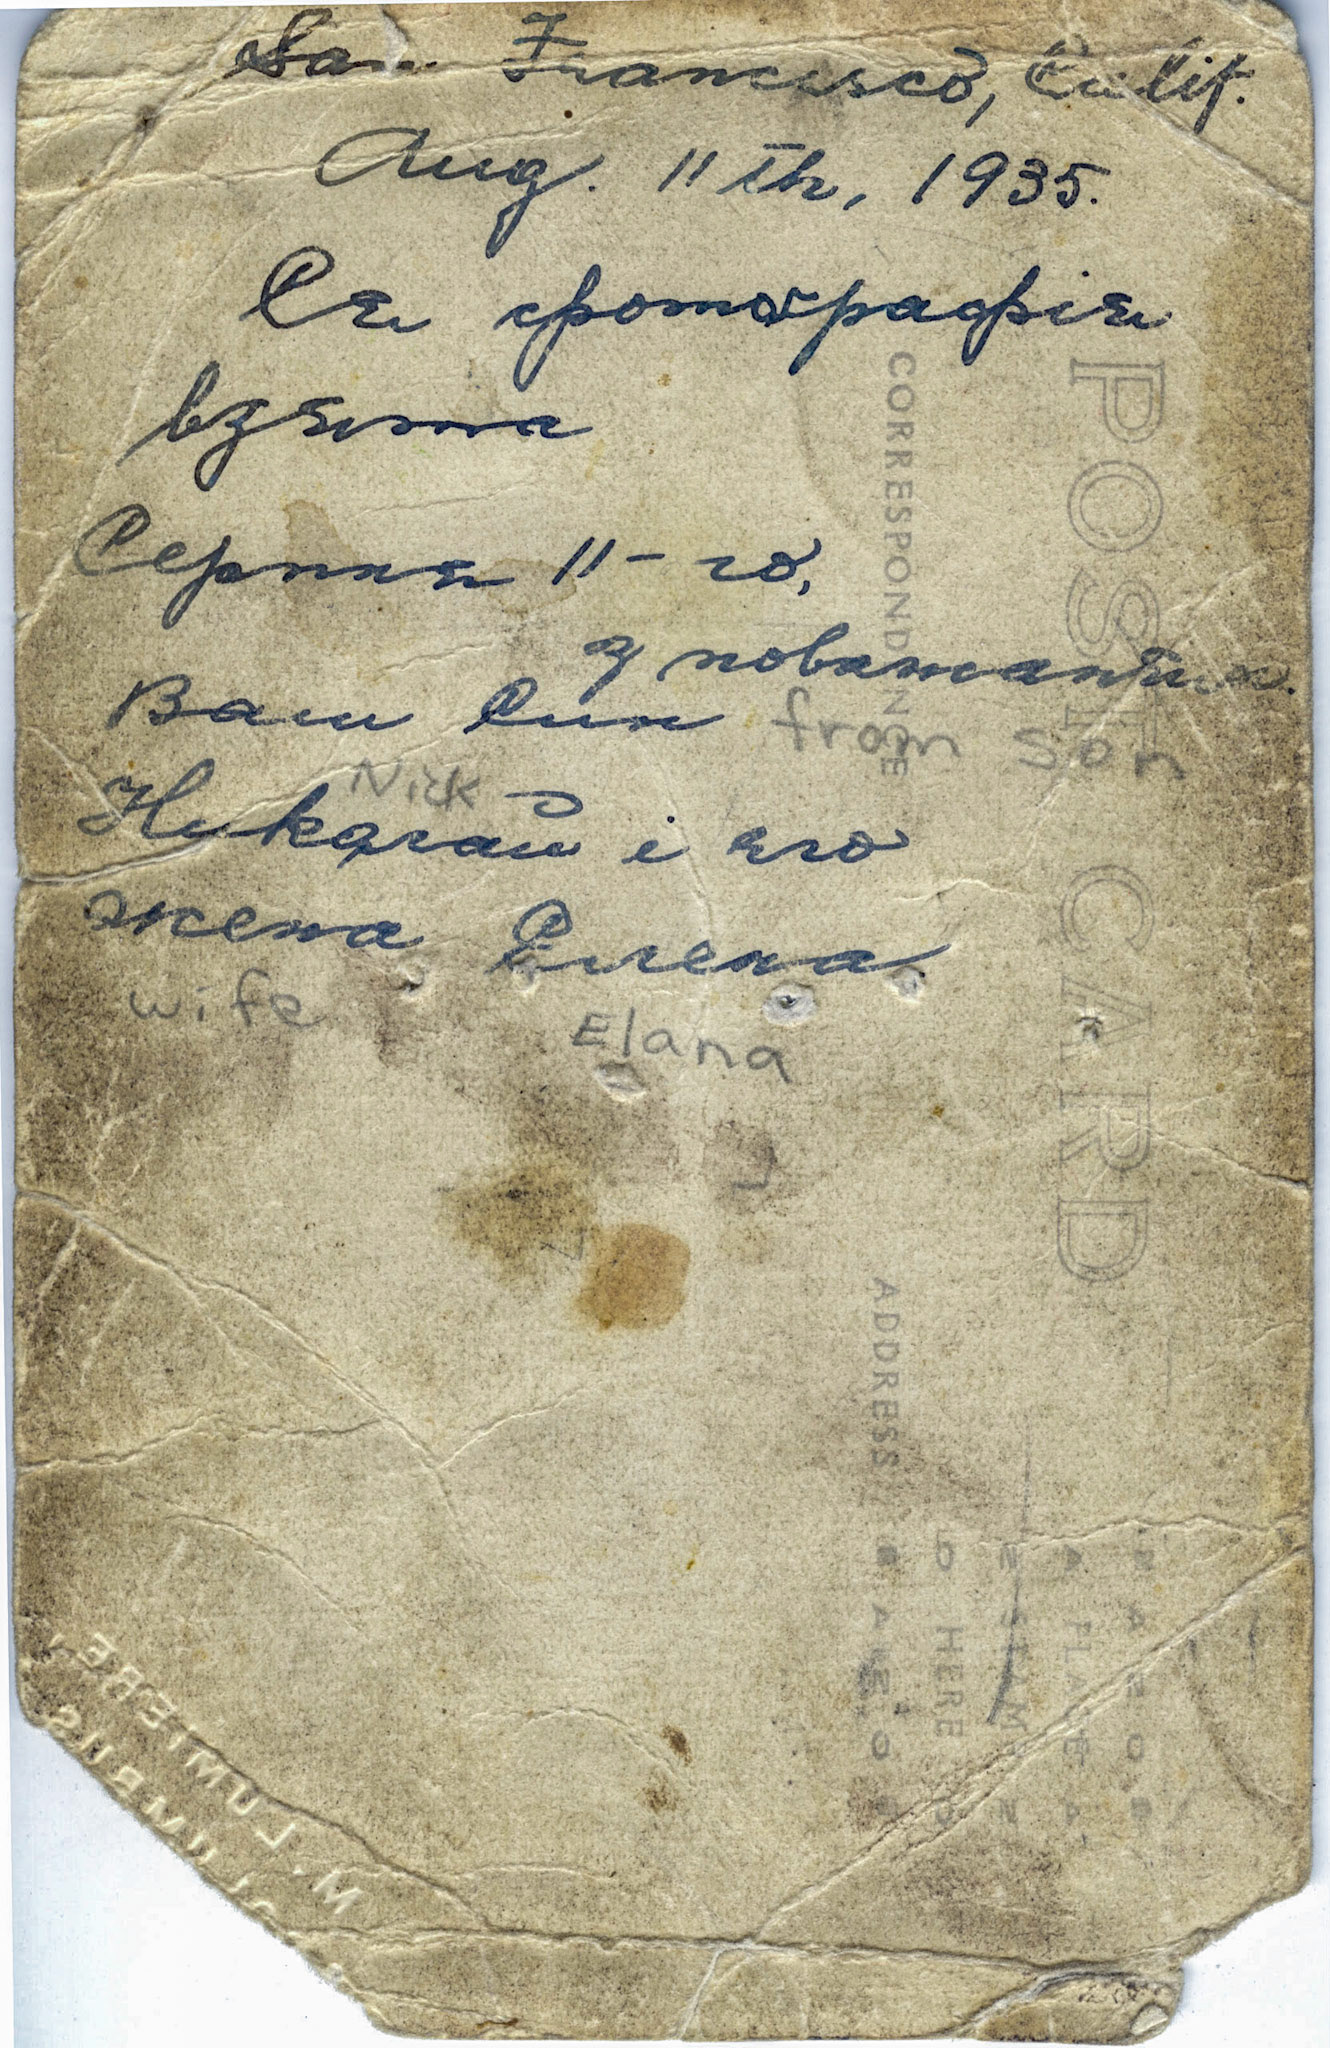 San Francisco, Calif.
Aug. 11th, 1935.
Ся фотографія
взята
Серпня 11-го,
з поважаням.
Ваш Син from son
Nick
Николай і его
жена Елена
wife Elana
POST CARD
CORRESPONDENCE
ADDRESS
HERE
M. LUMIERE